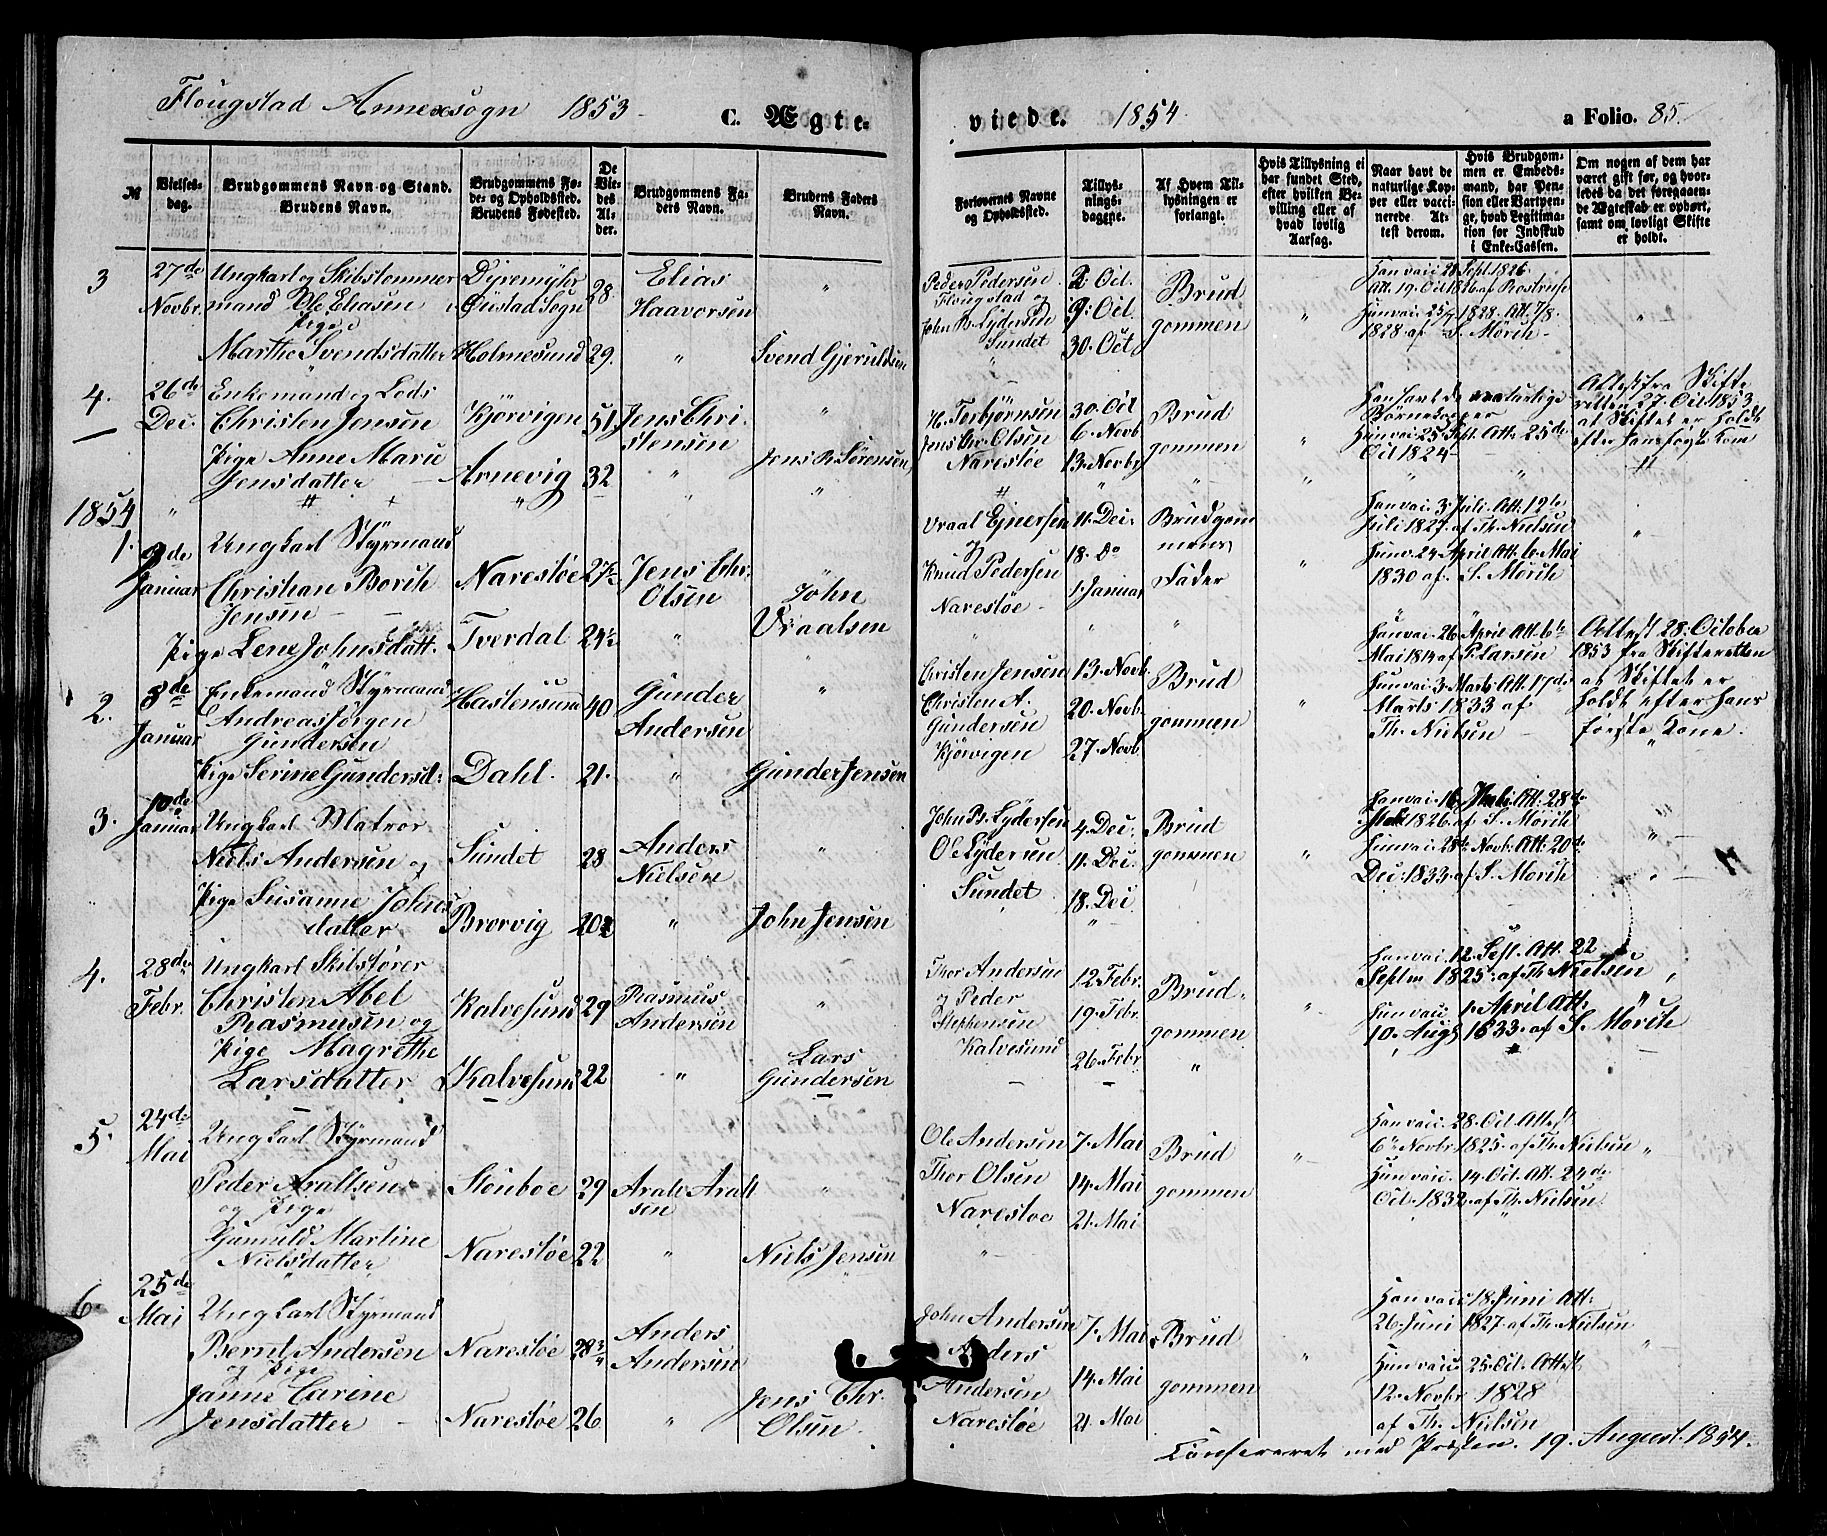 Flougstad Annexsogn 1853 C. Ægte-
viede. 1854 a Folio. 85.
№
Vielses-
dag.
Brudgommens Navn og Stand.
Brudens Navn.
Brudgommens Fø-
de- og Opholdssted.
Brudens Fødested.
De
Vie-
des
Al-
der.
Brudgommens Fa-
ders Navn.
Brudens Faders
Navn.
Forlovernes Navne
og Opholdssted.
Tillys-
nings-
dagene.
Af Hvem Til-
lysningen er
forlangt.
Hvis Tillysning ei
har fundet Sted,
efter hvilken Be-
villing eller af
hvad lovlig
Aarsag.
Naar havt de
naturlige Kop-
per eller vacci-
nerede. At-
test derom.
Hvis Brudgom-
men er Embeds-
mand, har Pen-
sion eller Vartpen-
ge, hvad Legitima-
tion for Indskud
i Enke-Cassen.
Om nogen af dem har
været gift før, og hvor-
ledes da det foregaaen-
de Ægteskab er ophørt,
samt om lovligt Skifte
er holdt.
3 27de Novbr.
Ungkarl og Skibstømmer
mand Ole Eliasen
Pige
Marthe Svendsdatter
Dyremyhr
Øiestad Sogn
Holmesund
28
29.
Elias
Haavorsen
Svend Gjeruldsen
Peder Pedersen
Flougstad og
John B. Lydersen
Sundet
2. Oct.
9. Oct.
30. Oct
Brud
gommen
Han vacc 28 Sept. 1826
Att. 19. Oct 1826 af Rostrup
Hun vac. 25/7 1828. Att. 7/8
1828 af S. Mørch
4. 26de Dec.
Enkemand og Lods
Christen Jensen
Pige Anne Marie
Jensdatter
Kjørvigen
Arnevig
51
32
Jens Chri
stensen
Jens R. Sørensen
H. Torbjørnsen
Jens Chr. Olsen
Narestøe
30. Oct
6. Novb
13. Novbr
Brud
gommen
Han havt de naturlige
Børnekopper
Hun vac. 25 Sept. Att. 25de
Oct 1824
Attest fra Skifte
retten 27. Oct 1853
at Skiftet er holdt
efter hans første Kone
1854
1. 9de Januar
Ungkarl Styrmand
Christian Borch
Jensen
Pige Lene Johnsdatt.
Narestøe
Tverdal
27½
24½
Jens Chr.
Olsen
John
Vraalsen
Vraal Ejnersen
og
Knud Pedersen
Narestøe
11. Dec.
18. Do
1. Januar
Brudgom
mens
Fader
Han vac. 3. Juli Att. 12te
Juli 1827 af Th. Nielsen
Hun v. 24. April Att. 6. Mai
1830 af S. Mørch
2. 8de Januar
Enkemand Styrmand
Andreas Jørgen
Gundersen
Pige Serine Gundersd.
Hastensund
Dahl.
40
21.
Gunder
Andersen
Gunder Jensen
Christen Jensen
Christen A.
Gundersen
Kjørvigen
13. Novb.
20. Novb.
27. Novb.
Brud
gommen
Han vac. 26. April Att. 6te
Mai 1814 af P. Larsen
Hun vac. 3. Marts Att. 17de
Marts 1833 af
Th. Nielsen
Attest 28. October
1853 fra Skifteretten
at Skiftet er
holdt efter hans
første Kone.
3. 10de Januar
Ungkarl Matros
Niels Andersen og
Pige Susanne Johns
datter
Sundet
Brorvig
28
20½
Anders
Nielsen
John Jensen
John B. Lydersen
Ole Lydersen
Sundet
4. Dec.
11. Dec.
18. Dec
Brud
gommen
Han vac. 16. Juli Att. 28de
Juli 1826 af S. Mørch
Hun vac. 28de Novb. Att. 20de
Dec. 1833 af S. Mørch
4. 28de Febr.
Ungkarl Skibsfører
Christen Abel
Rasmusen og
Pige Magrethe
Larsdatter
Kalvesund
Kalvesund
29
22
Rasmus
Andersen
Lars
Gundersen
Thor Andersen
og Peder
Stephensen
Kalvesund
12. Febr.
19. Febr.
26. Febr
Brud
gommen
Han vac. 12. Sept. Att. 22
Septbr 1825 af Th. Nielsen
Hun vacc 1. April Att.
10. Aug 1833 af S. Mørch
5. 24de Mai
Ungkarl Styrmand
Peder Araltsen
og Pige
Gunuld Martine
Nielsdatter
Stoueboe
Narestøe
29
22
Aralt Aralt
sen
Niels Jensen
Ole Andersen
Thor Olsen
Narestøe
7. Mai
14. Mai
21. Mai
Brud
gommen
Han vacc. 28. Oct. Attest
6te Novbr. 1825 af Th. Nielsen
Hun vacc. 14. Oct. Att. 24de
Oct. 1832 af Th. Nielsen
6 25de Mai
Ungkarl Styrmand
Bernt Andersen
og Pige
Janne Carine
Jensdatter
Narestøe
Narestøe
28¾
26
Anders
Andersen
Jens Chr.
Olsen
John Andersen
Anders
Andersen
Narestøe
7. Mai
14. Mai
21. Mai
Brud
gommen
Han vacc. 18. Juni Att.
26. Juni 1827 af Th. Nielsen
Hun vacc. 25. Oct. Attest
12. Novbr 1828
af Th. Nielsen
Confereret med Præsten. 19. August. 1854.